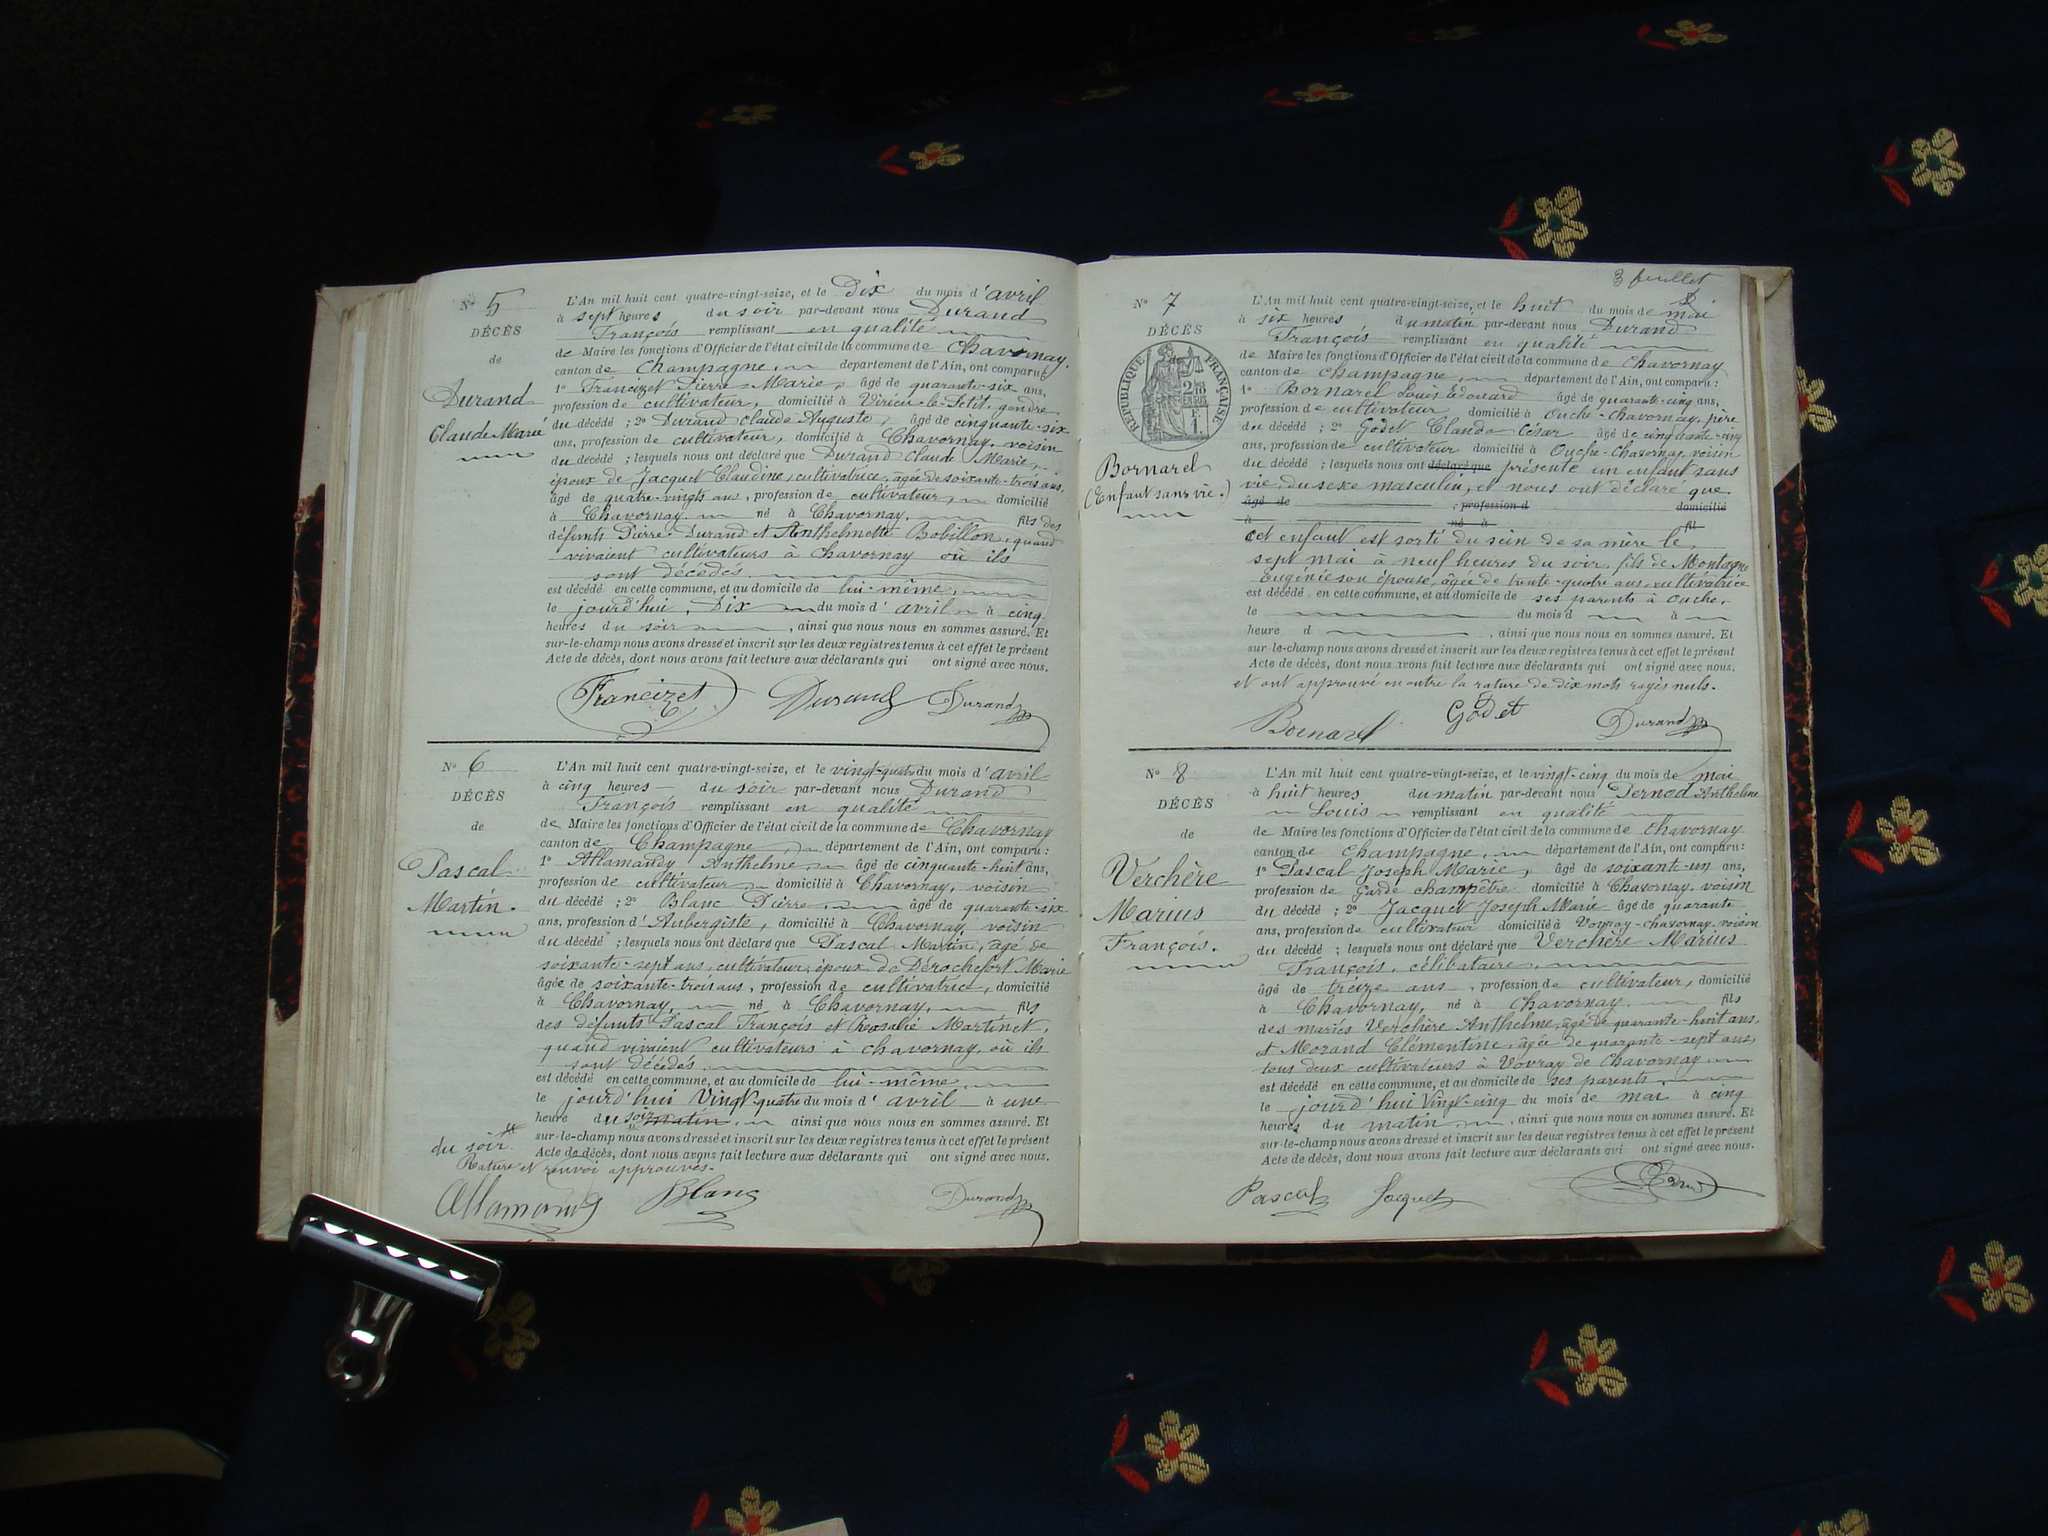 N° 5
DÉCÈS
de
Durand
Claude Marie
L'An mil huit cent quatre-vingt-seize, et le Dix du mois d'avril
à sept heures du soir par-devant nous Durand
François remplissant en qualité
de Maire les fonctions d'Officier de l'état civil de la commune de Chavornay,
canton de Champagne, département de l'Ain, ont comparu
1° Francizet Pierre-Marie, âgé de quarante-six ans,
profession de cultivateur, domicilié à Virieu-le-Petit, gendre
du décédé ; 2° Durand Claude Auguste, âgé de cinquante-six
ans, profession de cultivateur, domicilié à Chavornay, voisin
du décédé ; lesquels nous ont déclaré que Durand Claude Marie,
époux de Jacquet Claudine, cultivatrice, âgée de soixante-trois ans,
âgé de quatre-vingts ans, profession de cultivateur, domicilié
à Chavornay né à Chavornay, fils des
défunts Pierre Durand et Anthelmette Bobillon, quand
vivaient cultivateurs à Chavornay où ils
sont décédés
est décédé en cette commune, et au domicile de lui-même,
le jourd'hui, Dix du mois d'avril à cinq
heures du soir, ainsi que nous nous en sommes assuré. Et
sur-le-champ nous avons dressé et inscrit sur les deux registres tenus à cet effet le présent
Acte de décès, dont nous avons fait lecture aux déclarants qui ont signé avec nous.
Francizet Durand Durand
N° 6
DÉCÈS
de
Pascal
Martin.
L'An mil huit cent quatre-vingt-seize, et le vingt-quatre du mois d'avril
à cinq heures du soir par-devant nous Durand
François remplissant en qualité
de Maire les fonctions d'Officier de l'état civil de la commune de Chavornay
canton de Champagne, département de l'Ain, ont comparu :
1° Allamandy Anthelme, âgé de cinquante-huit ans,
profession de cultivateur domicilié à Chavornay, voisin
du décédé ; 2° Blanc Pierre, âgé de quarante-six
ans, profession d'Aubergiste, domicilié à Chavornay, voisin
du décédé ; lesquels nous ont déclaré que Pascal Martin, âgé de
soixante-sept ans, cultivateur, époux de Dérochefort Marie
âgée de soixante-trois ans, profession de cultivatrice, domicilié
à Chavornay, né à Chavornay, fils
des défunts Pascal François et Rosalie Martinet,
quand vivaient cultivateurs à Chavornay, où ils
sont décédés
est décédé en cette commune, et au domicile de lui-même,
le jourd'hui Vingt-quatre du mois d'avril à une
heure du soir matin, ainsi que nous nous en sommes assuré. Et
sur-le-champ nous avons dressé et inscrit sur les deux registres tenus à cet effet le présent
Acte de décès, dont nous avons fait lecture aux déclarants qui ont signé avec nous.
du soir
Rature et renvoi approuvés.
Allamandy Blanc Durand
3 feuillet
N° 7
DÉCÈS
RÉPUBLIQUE FRANÇAISE
Bornarel
(Enfant sans vie.)
L'An mil huit cent quatre-vingt-seize, et le huit du mois de mai
à six heures du matin par-devant nous Durand
François remplissant en qualité
de Maire les fonctions d'Officier de l'état civil de la commune de Chavornay
canton de Champagne, département de l'Ain, ont comparu :
1° Bornarel Louis Edouard âgé de quarante-cinq ans,
profession de cultivateur domicilié à Ouche-Chavornay, père
du décédé ; 2° Godet Claude César âgé de cinquante-cinq
ans, profession de cultivateur domicilié à Ouche-Chavornay, voisin
du décédé ; lesquels nous ont déclaré que présenté un enfant sans
vie, du sexe masculin, et nous ont déclaré que
âgé de ; profession d domicilié
à né à fil
cet enfant est sorti du sein de sa mère le
sept mai à neuf heures du soir, fils de Montagne
Eugénie son épouse, âgée de trente-quatre ans, cultivatrice
est décédé en cette commune, et au domicile de ses parents à Ouche,
le du mois d à
heure d, ainsi que nous nous en sommes assuré. Et
sur-le-champ nous avons dressé et inscrit sur les deux registres tenus à cet effet le présent
Acte de décès, dont nous avons fait lecture aux déclarants qui ont signé avec nous.
et ont approuvé en outre la rature de dix mots rayés nuls.
Bornarel Godet Durand
N° 8
DÉCÈS
de
Verchère
Marius
François.
L'An mil huit cent quatre-vingt-seize, et le vingt-cinq du mois de mai
à huit heures du matin par-devant nous Pernod Anthelme
Louis remplissant en qualité
de Maire les fonctions d'Officier de l'état civil de la commune de Chavornay
canton de Champagne, département de l'Ain, ont comparu :
1° Pascal Joseph Marie, âgé de soixant-un ans,
profession de Garde champêtre domicilié à Chavornay, voisin
du décédé ; 2° Jacquet Joseph Marie âgé de quarante
ans, profession de cultivateur domicilié à Vovray-Chavornay, voisin
du décédé ; lesquels nous ont déclaré que Verchère Marius
François, célibataire,
âgé de treize ans, profession de cultivateur, domicilié
à Chavornay, né à Chavornay, fils
des mariés Verchère Anthelme, âgé de quarante-huit ans,
et Morand Clémentine, âgée de quarante-sept ans,
tous deux cultivateurs à Vovray de Chavornay
est décédé en cette commune, et au domicile de ses parents,
le jourd'hui Vingt-cinq du mois de mai à cinq
heures du matin, ainsi que nous nous en sommes assuré. Et
sur-le-champ nous avons dressé et inscrit sur les deux registres tenus à cet effet le présent
Acte de décès, dont nous avons fait lecture aux déclarants qui ont signé avec nous.
Pascal Jacquet